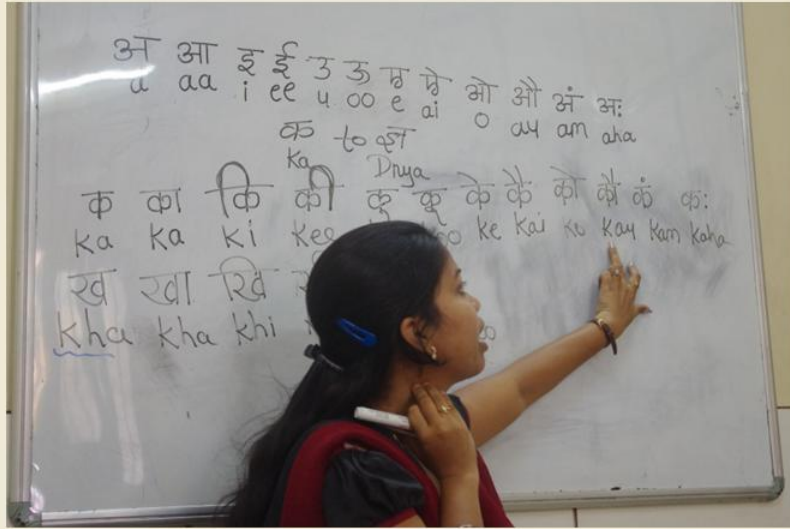 अ आ इ ई उ ऊ ए ऐ ओ औ अं अः
a aa i ee u oo e ai o au am aha
क to ज्ञ
Ka Dnya
क का कि की कु कू के कै को कौ कं कः
Ka Ka Ki Kee ke Kai Ko Kau Kam Kaha
ख खा खि
Kha Kha Khi